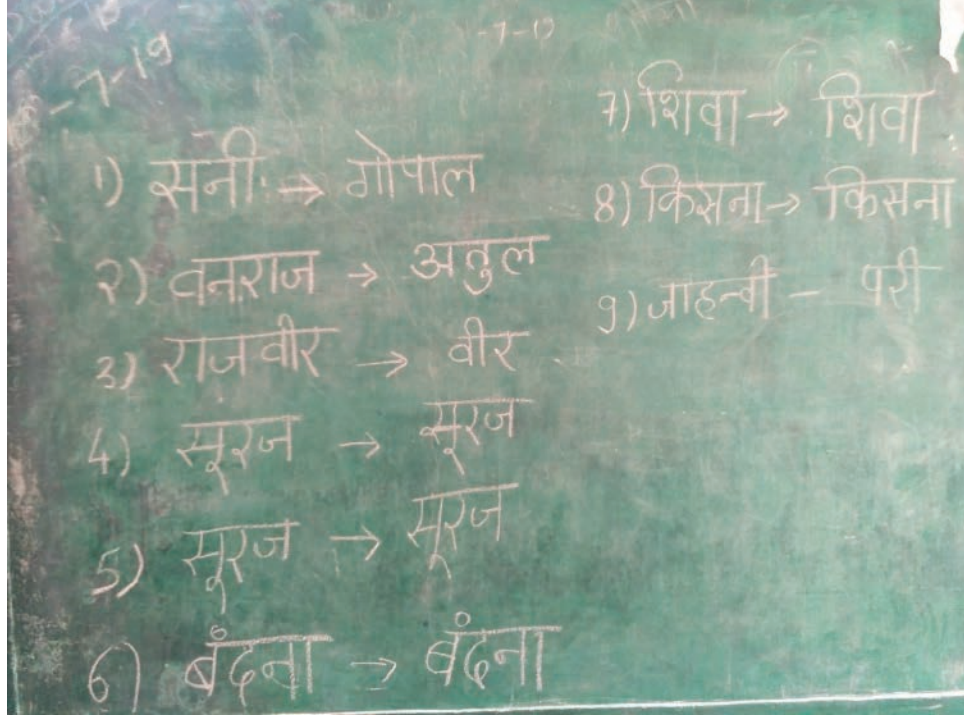 -7-19
1) सनी → गोपाल
२) वनराज → अतुल
3) राजवीर → वीर
4) सूरज → सूरज
5) सूरज → सूरज
6) बँदना → बंदना
7) शिवा → शिवा
8) किसना → किसना
9) जाहन्वी – परी